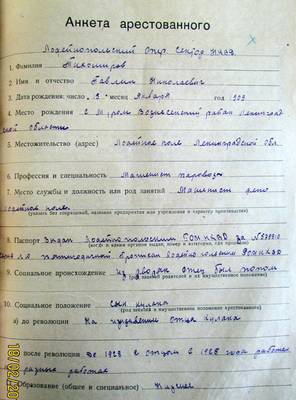 Анкета арестованного
Лодейнопольский Опер. Сектор НКВД
1. Фамилия Тихомиров
2. Имя и отчество Павлин Николаевич
3. Дата рождения: число 12 месяц Января год 1909
4. Место рождения с. М Вознесенский район Ленинград
ской области
5. Местожительство (адрес) Лодейное поле Ленинградской обл.
6. Профессия и специальность Машинист паровоза
7. Место службы и должность или род занятий Машинист депо
Лодейное поле
(указать без сокращений, название предприятия или учреждения и характер производства)
8. Паспорт Выдан Лодейнопольским РОМ НКВД за №
(когда и каким органом выдан, номер и категория, где прописан)
9. Социальное происхождение Из дворян отец был попом
(род занятий родителей и их имущественное положение)
10. Социальное положение Сын кулака
(род занятий и имущественное положение арестованного)
а) до революции На иждивении отца кулака
после революции До 1928 с отцом с 1928 года работал
работах
Образование (общее и специальное) Низшее